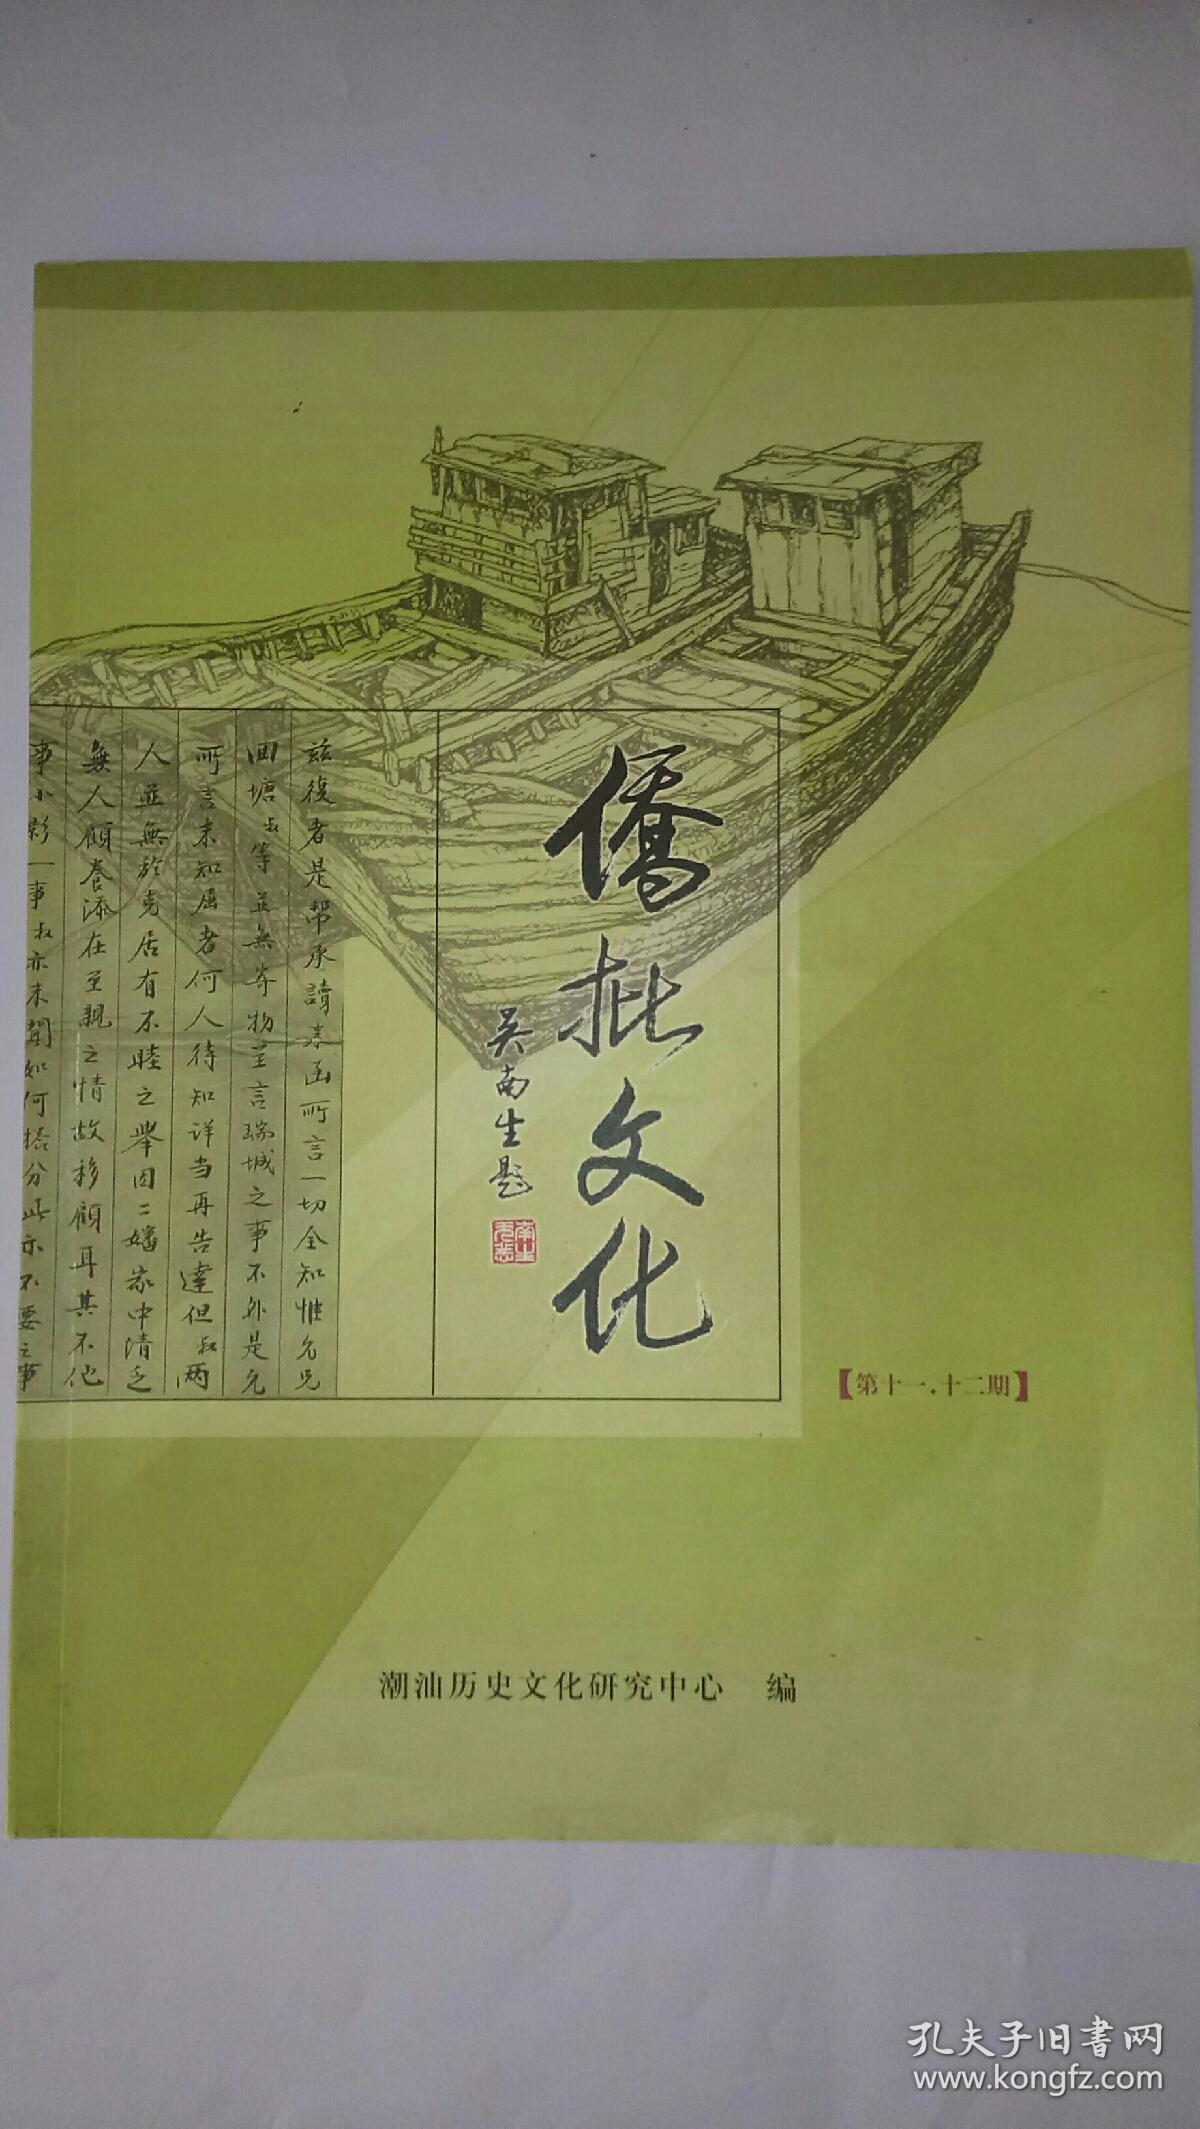 僑批文化
吴南生题
兹復者是幇承讀来函所言一切全知惟允兄
田塘叔等並無寄物至言瑞城之事不外是允
所言未知屬者何人待知详当再告達但叔两
人並無於克居有不睦之举因二嬸家中清乏
無人顧養添在至親之情故移顧耳其不他
事小影一事叔亦未聞如何拾分此示不要之事
【第十一.十二期】
潮汕历史文化研究中心 编
孔夫子旧书网
www.kongfz.com